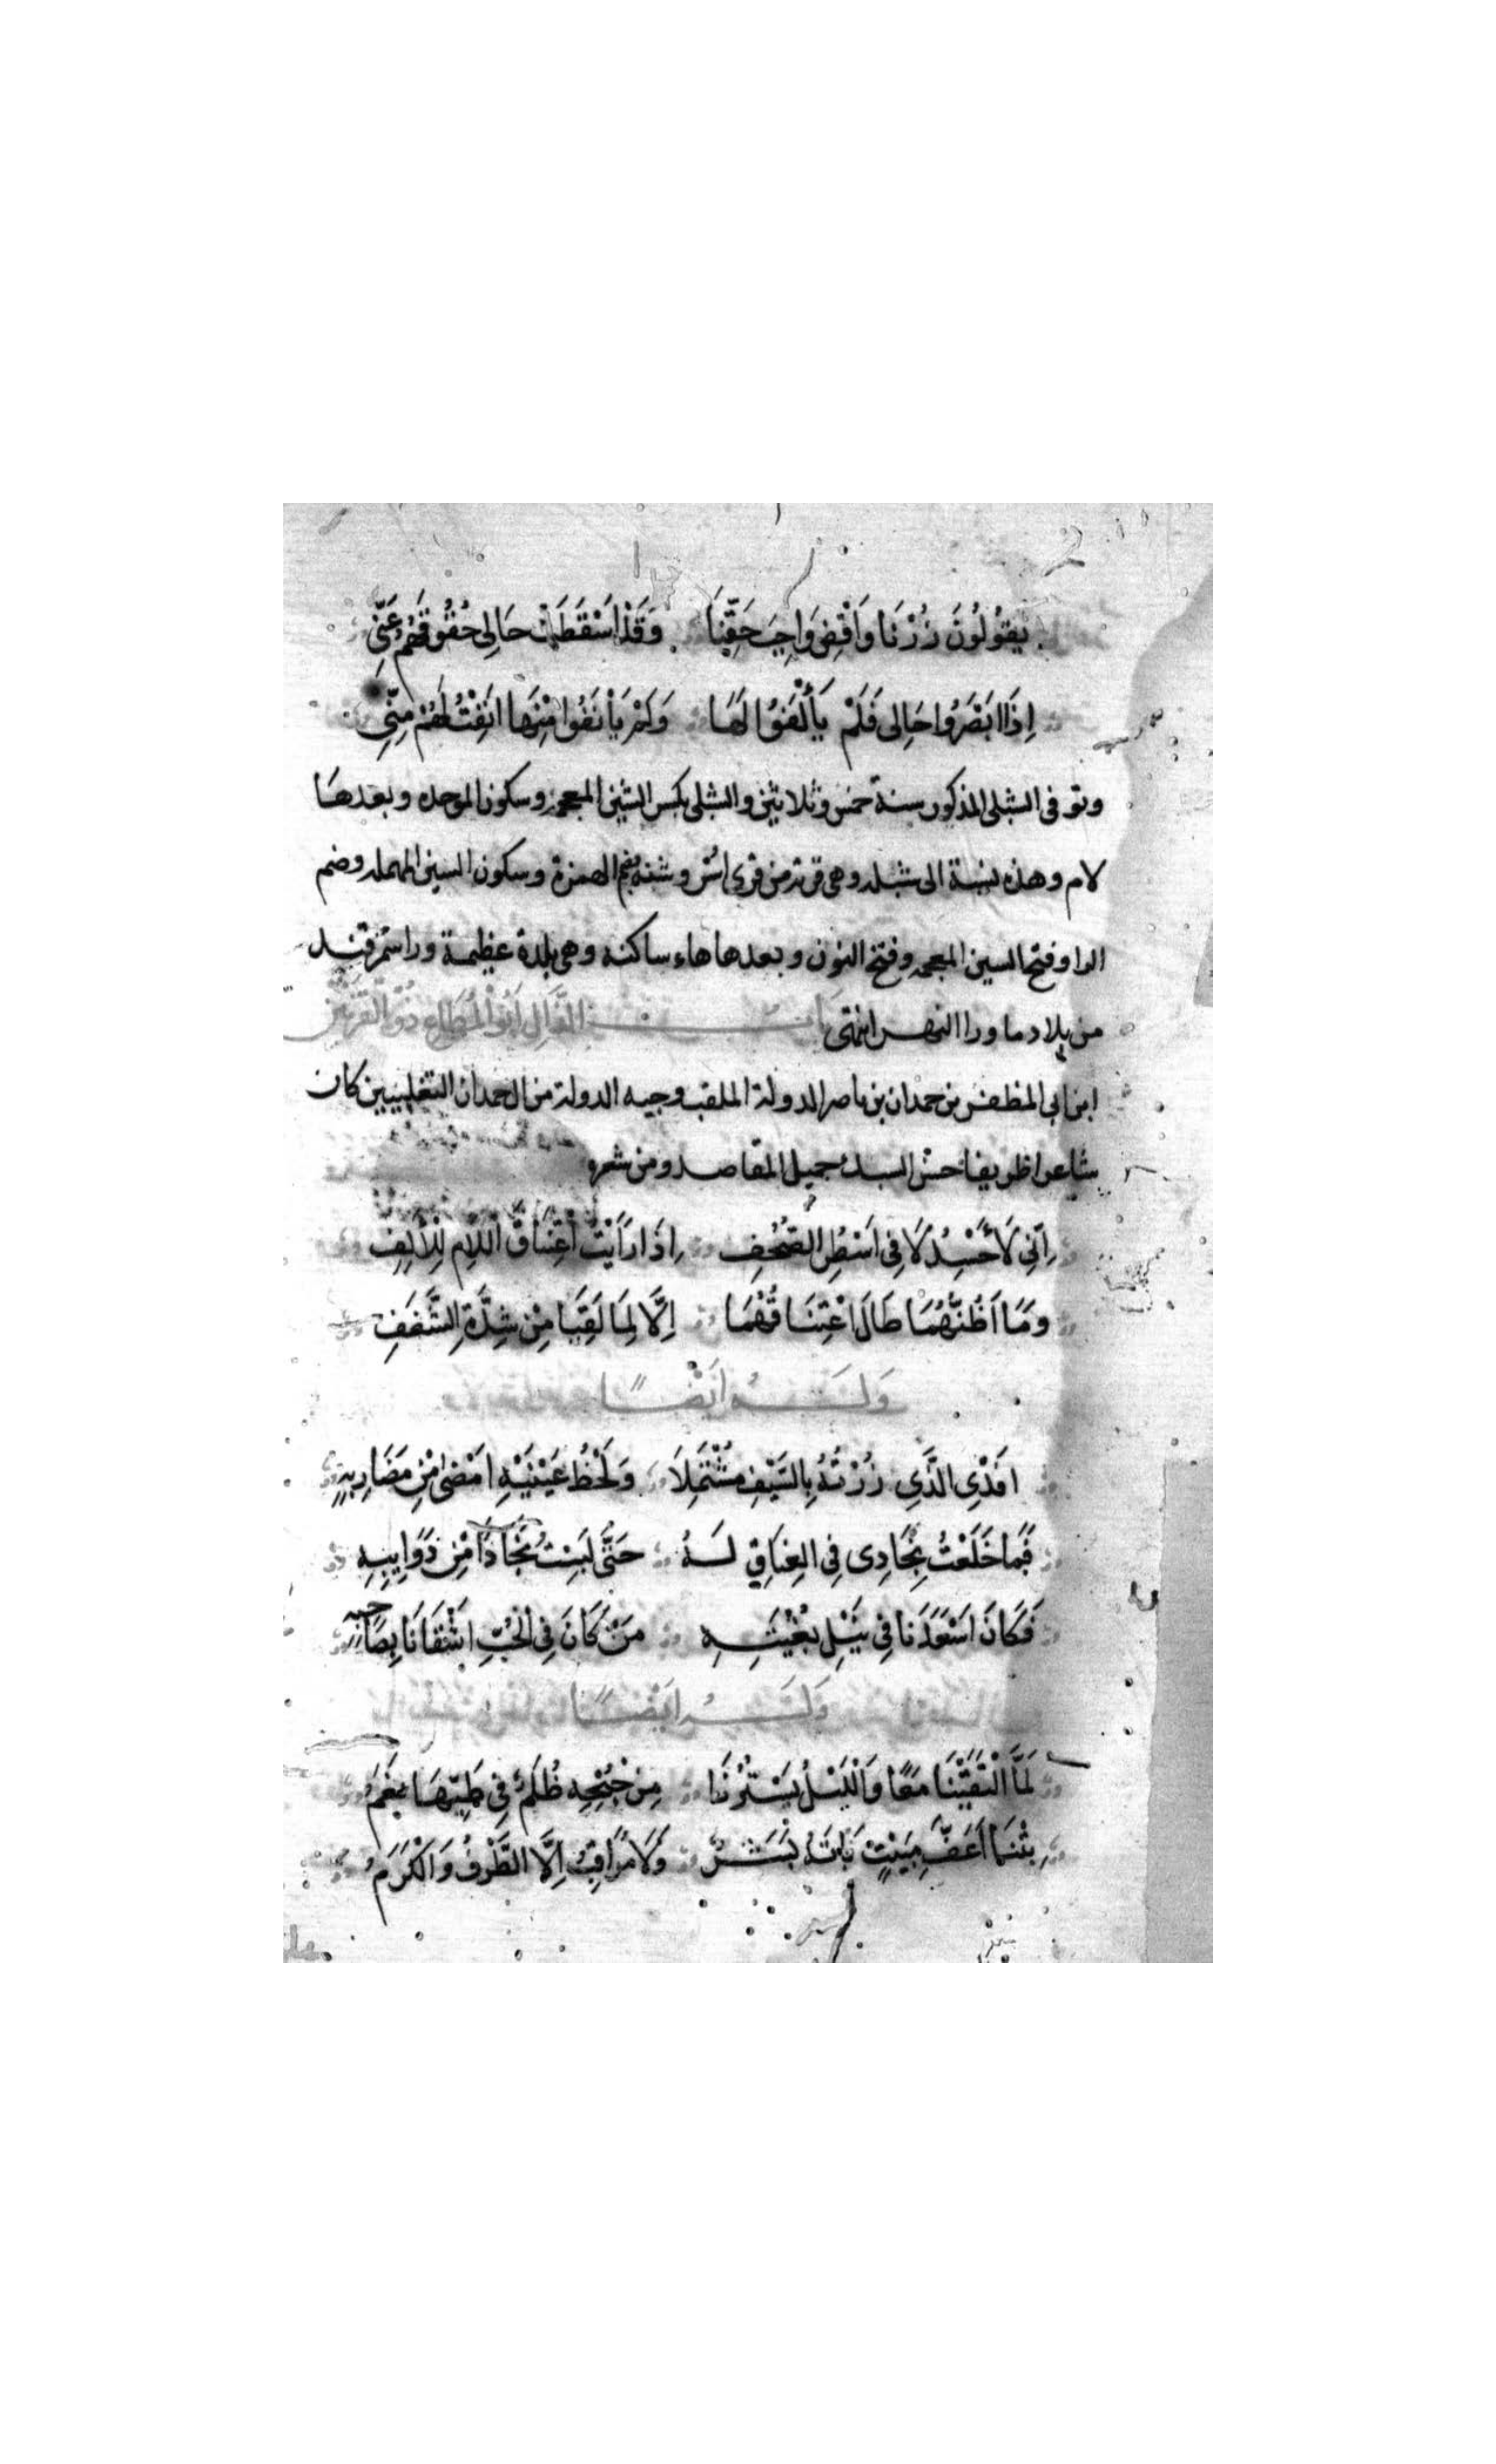 يَقُولُونَ زُرْنَا وَاقْضِ وَاجِبَ حَقِّنَا وَقَدْ اَسْقَطَتْ حَالِى حُقُوقَهُمُ عَنِّى
اِذَا ابَصَرُوا حَالِى فَلَمْ يَأْلَفوُا لَهَا وَلَمْ يَأْنَفُوا مِنْهَا انَفِتُ لَهُمْ مِنِّى
وتوفى الشبلى المذكور سنة خمس وثلاثين والشبلى بكسر الشين المعجمه وسكون الموحده وبعدها
لام وهذه نسبة الى شبله وهى قرية من قرى اسْروشنه بفتح الهمزة وسكون السين المهمله وضم
الرا وفتح السين المعجمه وفتح النون وبعدها هاء ساكنه وهى بلدة عظيمة ورا سمرقند
من بلاد ما ورا النهر انتهى بَابُ الذَّالِ اَبُو الْمُطَاعِ ذُو القَرْنَيْنِ
ابن ابى المظفر بن حمدان بن ناصر الدولة الملقب وجيه الدولة من ال حمدان التغلبيين كان
شاعرا ظريفا حسن السبك جميل المقاصد ومن شعره
اِنِّى لَاَحْسُدُ لَا فِى اَسْطُرِ الصُّحُفِ اِذَا رَاَيْتُ اعْتِنَاقَ اللَّامِ لِلْاَلِفِ
وَمَا اَظُنُّهُمَا طَالَ اعْتِنَاقُهُمَا اِلَّا لِمَا لَقِيَا مِنْ شِدَّةِ الشَّغَفِ
وَلَهُ اَيْضًا
افَدْى الَّذِى زُرْتُهُ بِالسَّيْفِ مُشْتَمِلَا وَلَحْظُ عَيْنَيْهِ امَضْى مِنْ مَضَارِبِهِ
فَمَا خَلَعْتُ نِجَادِى فِى العِنَاقِ لَهُ حَتَّى لَبِسْتُ نِجَادًا مِنْ ذَوَايِبِهِ
فَكَانَ اَسْعَدَنَا فِى نَيْلِ بُغْيَتِهِ مَنْ كَانَ فِى الْحُبِّ اَشْقَانَا بِصَاحِبِهِ
وَلَهُ اَيْضًا
لَمَّا الْتَقَيْنَا مَعًا وَالَّليْلُ يَسْتُرُنَا مِنْ جُنْحِهِ ظُلَمٌ فِى طَيِّهَا نِعَمُ
بِتْنَا اَعَفَّ مَبِيْتٍ بَاتَهُ بَشَرٌ وَلَا مُرَاقِبَ اِلَّا الظَّرْفُ وَالْكَرَمُ